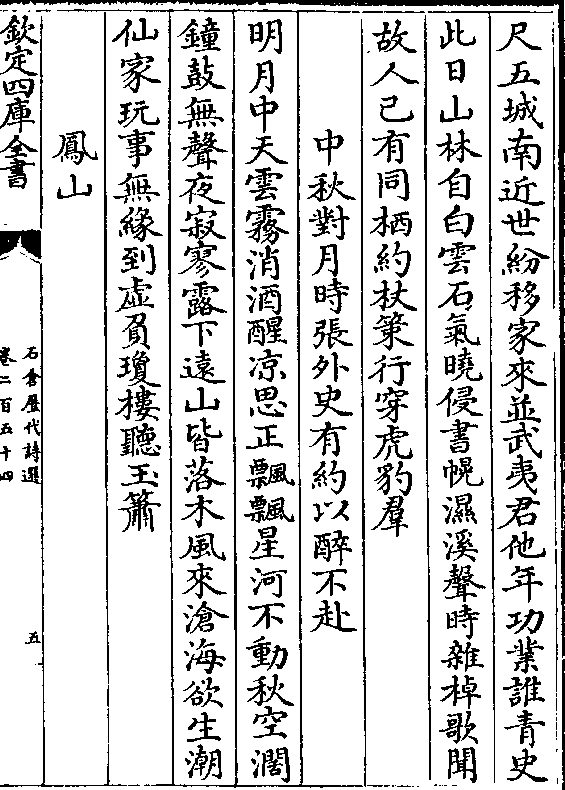 尺五城南近世紛移家來並武夷君他年功業誰青史
此日山林自白雲石氣曉侵書幌濕溪聲時雜棹歌聞
故人已有同栖約杖策行穿虎豹羣
中秋對月時張外史有約以醉不赴
明月中天雲霧消酒醒凉思正飄飄星河不動秋空濶
鐘鼓無聲夜寂寥露下遠山皆落木風來滄海欲生潮
仙家玩事無緣到虚負瓊樓聽玉簫
鳳山
欽定四庫全書
石倉歷代詩選
卷二百五十四
五